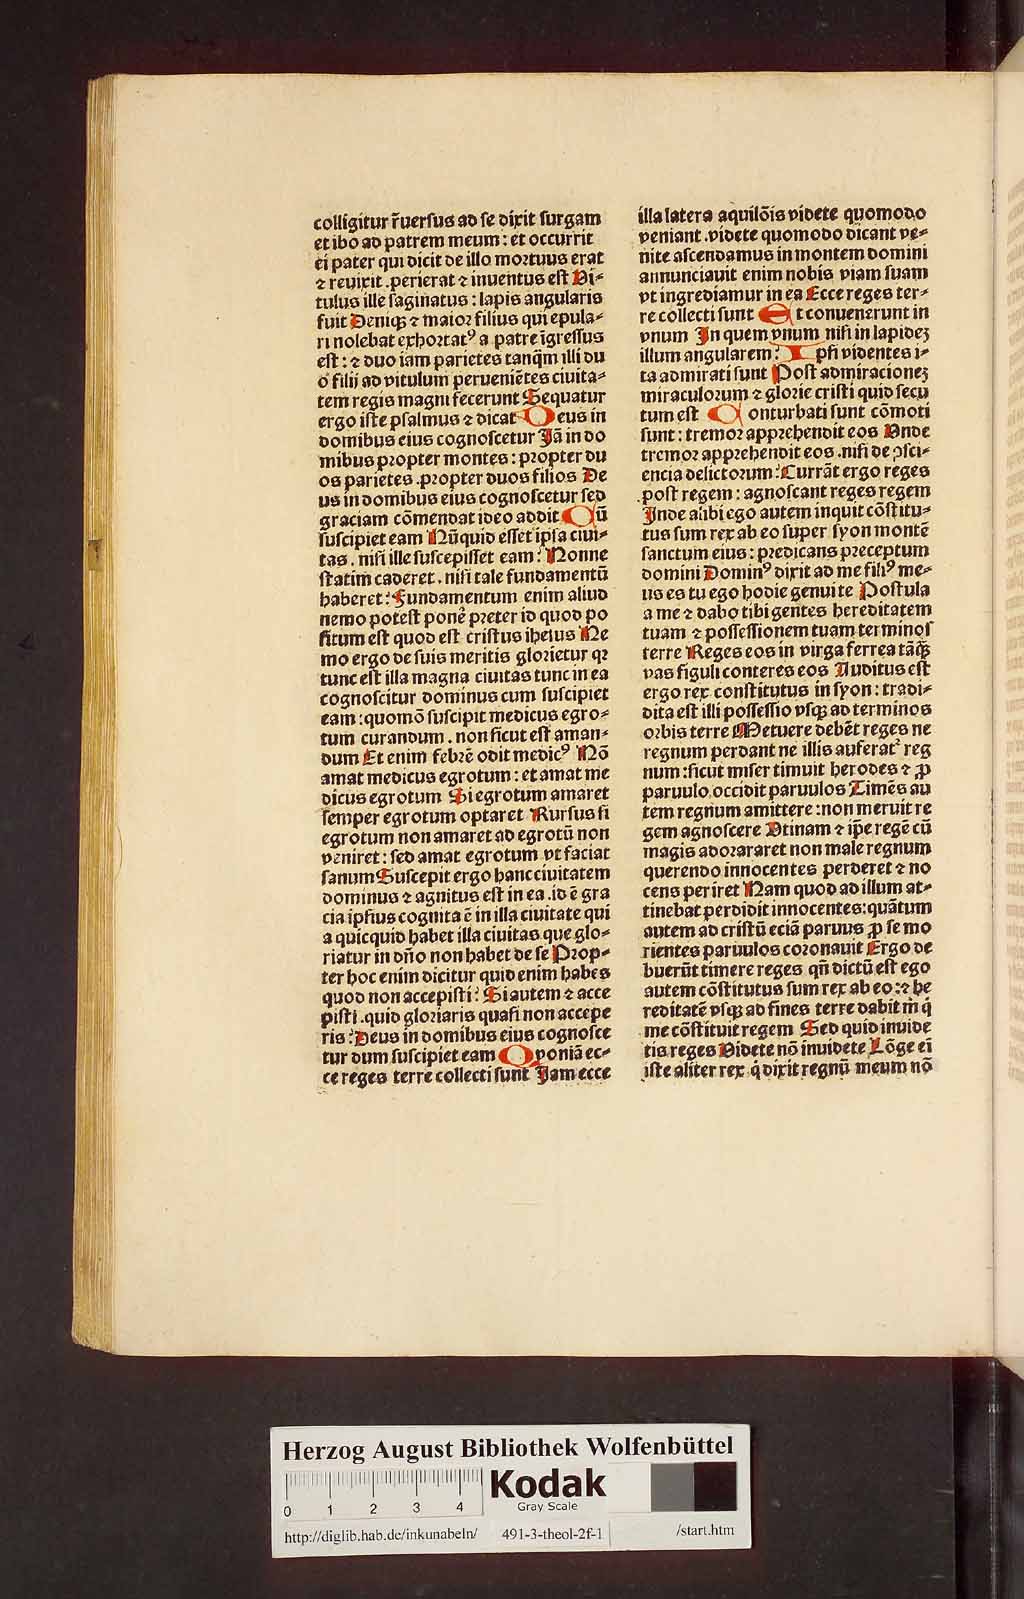 colligitur r̃uersus ad se dixit surgam
et ibo ad patrem meum : et occurrit
ei pater qui dicit de illo mortuus erat
⁊ reuixit . perierat ⁊ inuentus est Ui-
tulus ille saginatus : lapis angularis
fuit Deniqꝫ ⁊ maior filius qui epula-
ri nolebat exhortatꝰ a patre īgressus
est : ⁊ duo iam parietes tanq̄m illi du
o filij ad vitulum perueniētes ciuita-
tem regis magni fecerunt Sequatur
ergo iste psalmus ⁊ dicat Deus in
domibus eius cognoscetur Jā in do
mibus propter montes : propter du
os parietes . propter duos filios De
us in domibus eius cognoscetur sed
graciam cōmendat ideo addit Cū
suscipiet eam Nūquid esset ipsa ciui-
tas . nisi ille suscepisset eam : Nonne
statim caderet . nisi tale fundamentū
haberet : Fundamentum enim aliud
nemo potest ponē preter id quod po
situm est quod est cristus ihesus Ne
mo ergo de suis meritis glorietur qꝛ
tunc est illa magna ciuitas tunc in ea
cognoscitur dominus cum suscipiet
eam : quomō suscipit medicus egro-
tum curandum . non sicut est aman-
dum Et enim febrē odit medicꝰ Nō
amat medicus egrotum : et amat me
dicus egrotum Si egrotum amaret
semper egrotum optaret Rursus si
egrotum non amaret ad egrotū non
veniret : sed amat egrotum vt faciat
sanum Suscepit ergo hanc ciuitatem
dominus ⁊ agnitus est in ea . id ē gra
cia ipsius cognita ē in illa ciuitate qui
a quicquid habet illa ciuitas que glo-
riatur in dño non habet de se Prop-
ter hoc enim dicitur quid enim habes
quod non accepisti : Si autem ⁊ acce
pisti . quid gloriaris quasi non accepe
ris : Deus in domibus eius cognosce
tur dum suscipiet eam Quoniā ec-
ce reges terre collecti sunt Jam ecce
illa latera aquilōis videte quomodo
veniant . videte quomodo dicant ve-
nite ascendamus in montem domini
annunciauit enim nobis viam suam
vt ingrediamur in ea Ecce reges ter-
re collecti sunt Et conuenerunt in
vnum In quem vnum nisi in lapideꝫ
illum angularem : Ipsi videntes i-
ta admirati sunt Post admiracioneꝫ
miraculorum ⁊ glorie cristi quid secu
tum est Conturbati sunt cōmoti
sunt : tremor apprehendit eos Unde
tremor apprehendit eos . nisi de ꝯsci-
encia delictorum : Currāt ergo reges
post regem : agnoscant reges regem
Inde alibi ego autem inquit cōstitu-
tus sum rex ab eo super syon montē
sanctum eius : predicans preceptum
domini Dominꝰ dixit ad me filiꝰ me-
us es tu ego hodie genui te Postula
a me ⁊ dabo tibi gentes hereditatem
tuam ⁊ possessionem tuam terminos
terre Reges eos in virga ferrea tāqꝫ
vas figuli conteres eos Auditus est
ergo rex constitutus in syon : tradi-
dita est illi possessio vsqꝫ ad terminos
orbis terre Metuere debēt reges ne
regnum perdant ne illis auferatᷣ reg
num : sicut miser timuit herodes ⁊ ꝓ
paruulo occidit paruulos Timēs au
tem regnum amittere : non meruit re
gem agnoscere Utinam ⁊ ip̄e regē cū
magis adoraret non male regnum
querendo innocentes perderet ⁊ no
cens periret Nam quod ad illum at-
tinebat perdidit innocentes : quātum
autem ad cristū eciā paruus ꝓ se mo
rientes paruulos coronauit Ergo de
buerūt timere reges qñ dictū est ego
autem cōstitutus sum rex ab eo : ⁊ he
reditatē vsqꝫ ad fines terre dabit m̄ q̇
me cōstituit regem Sed quid inuide
tis reges Uidete nō inuidete Lōge ei
iste aliter rex q̇ dixit regnū meum nō
Herzog August Bibliothek Wolfenbüttel
0 1 2 3 4
Kodak
Gray Scale
http://diglib.hab.de/inkunabeln/ 491-3-theol-2f-1 /start.htm